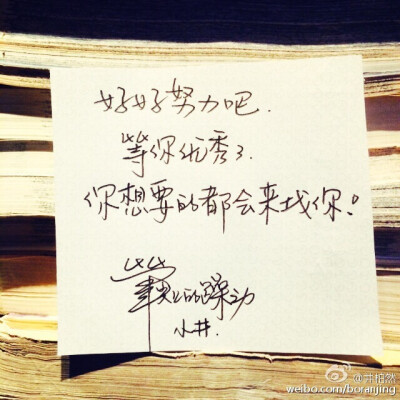 好好努力吧.
等你优秀了.
你想要的都会来找你!
笔尖上的躁动
小井.
@井柏然
weibo.com/boranjing